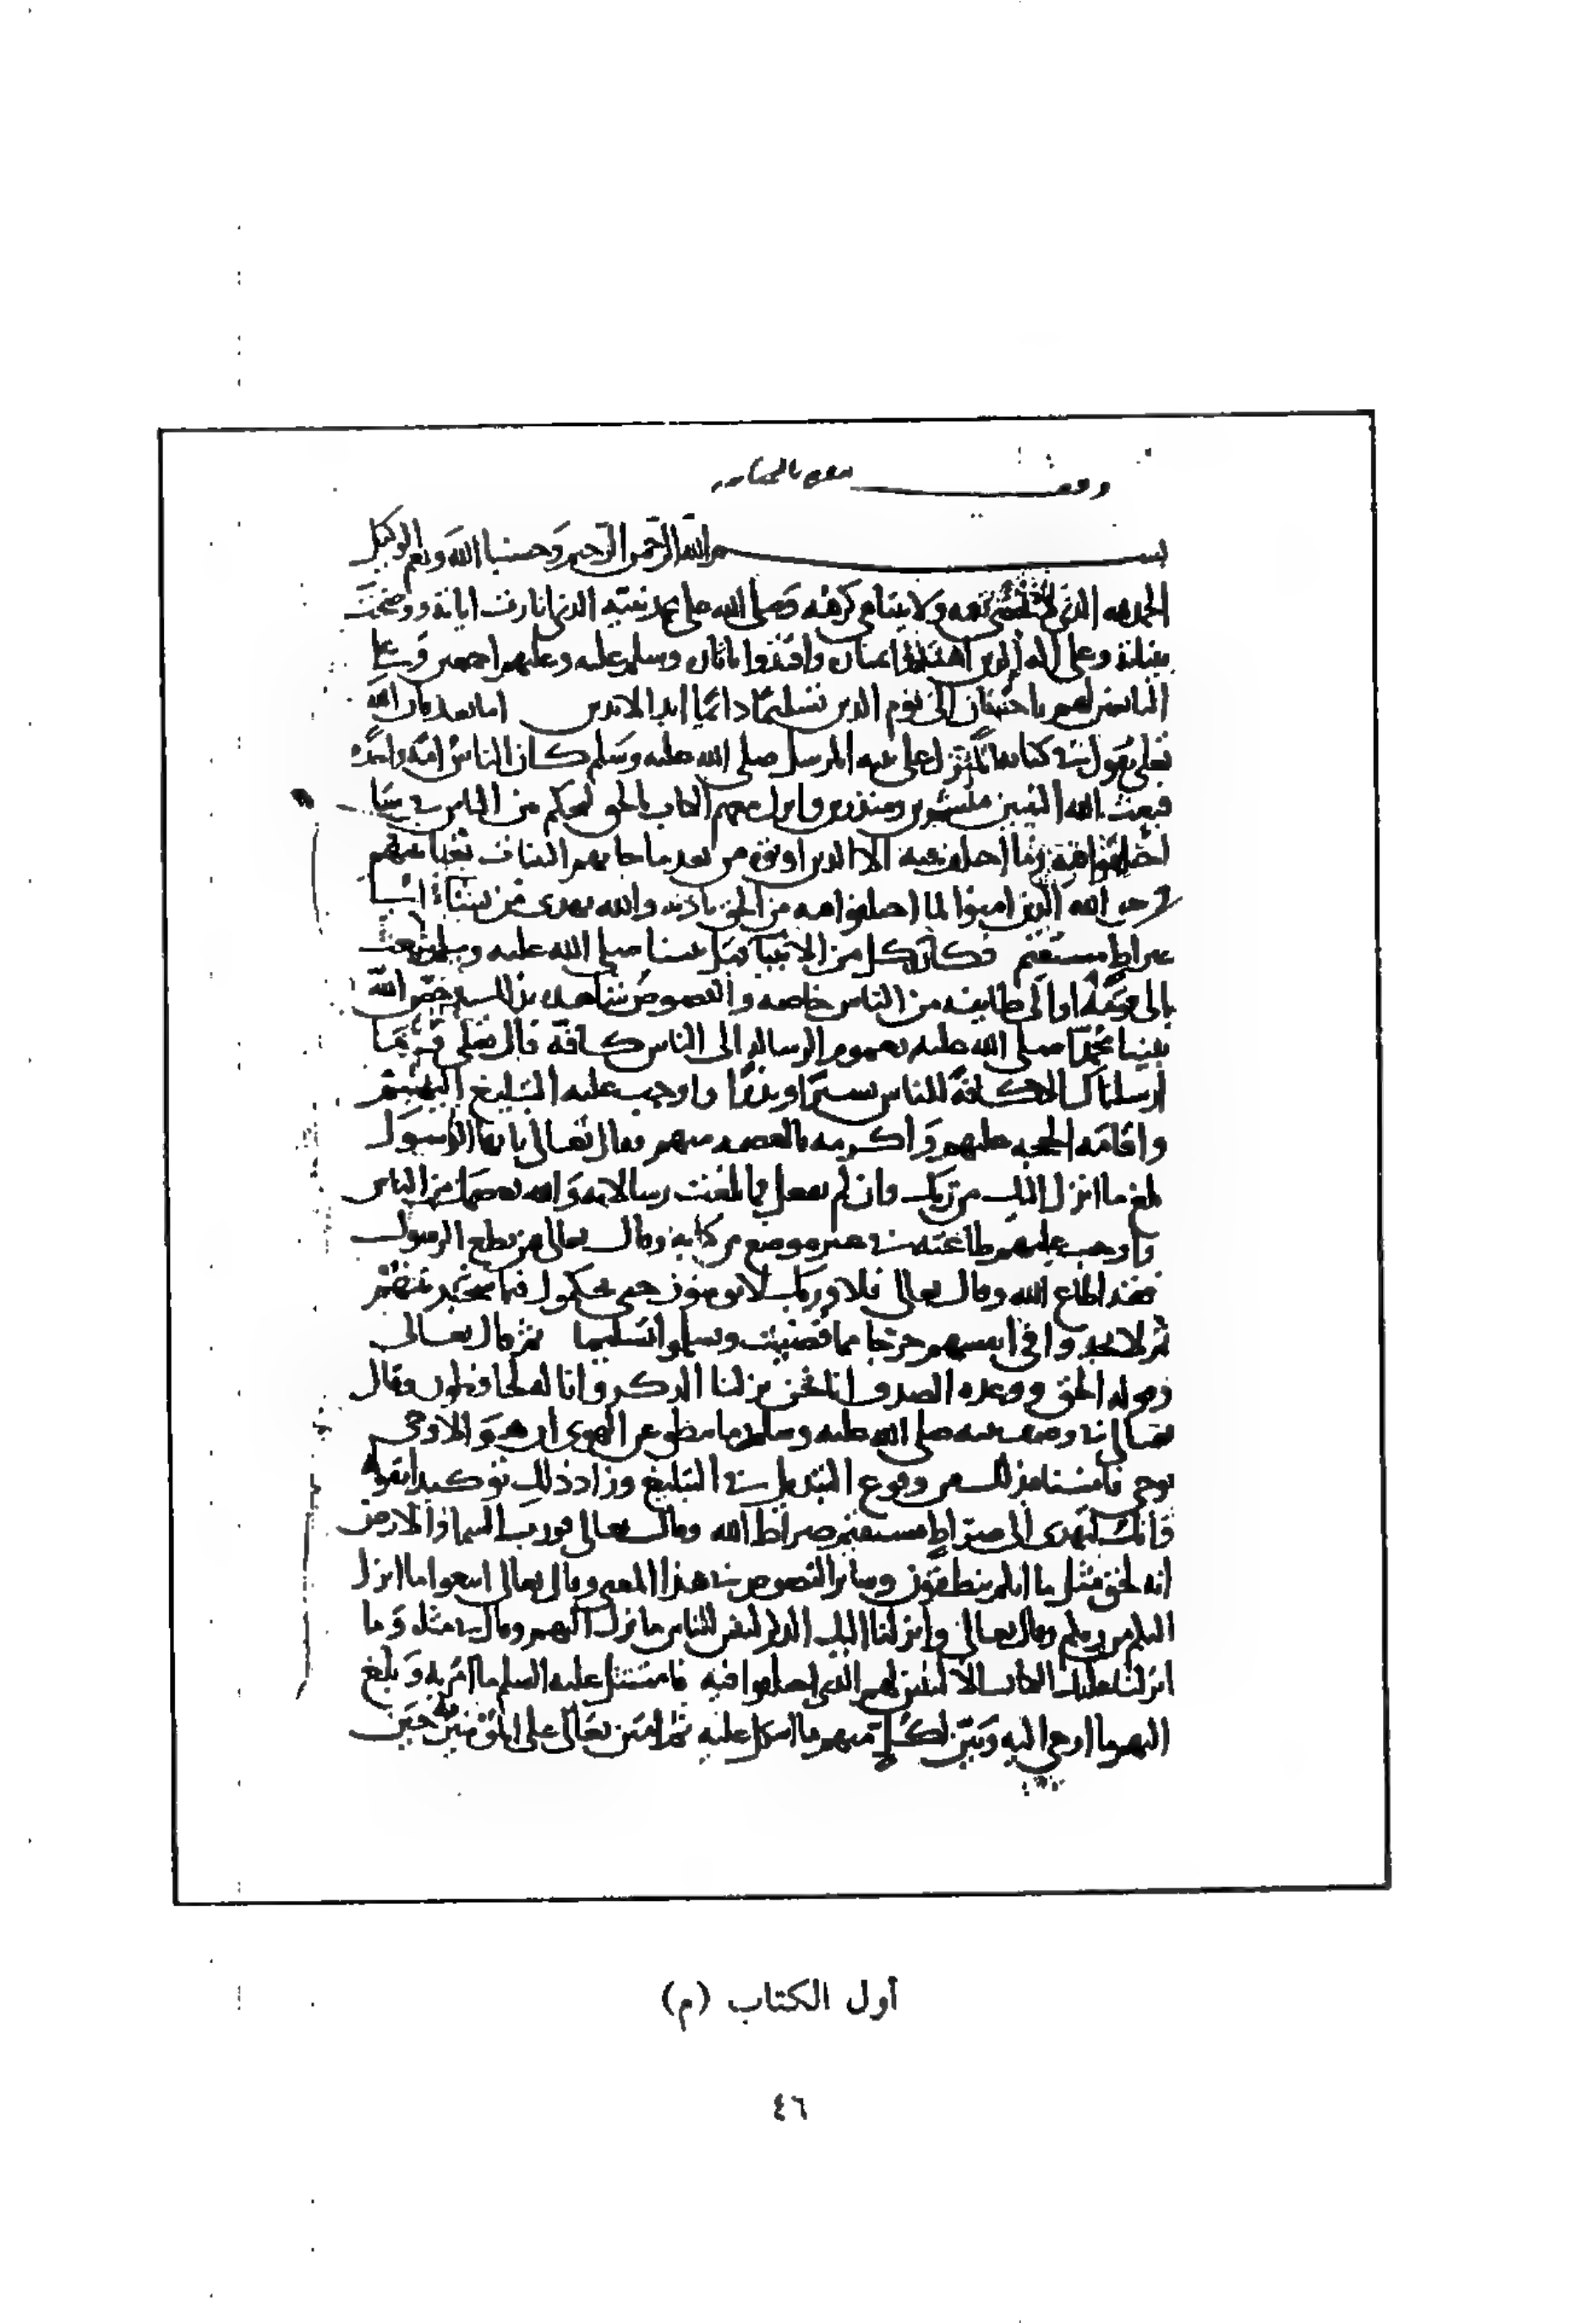 وقف
بسم الله الرحمن الرحيم وحسبنا الله ونعم الوكيل
الحمد لله الذي نعمه ولا يتناهى كرمه وصلى الله على محمد نبيه الذي انارت اياته ووضحت
بيناته وعلى اله الذين اهتدوا وسلم عليه وعليهم اجمعين وعلى
التابعين لهم باحسان الى يوم الدين تسليما دائما ابد الابدين اما بعد فان الله
تعلى يقول في كتابه المنزل على نبيه المرسل صلى الله عليه وسلم كان الناس امة واحدة
فبعث الله النبيين مبشرين ومنذرين وانزل معهم الكتاب بالحق ليحكم بين الناس فيما
اختلفوا فيه وما اختلف فيه الا الذين اوتوه من بعد ما جاتهم البينات بغيا بينهم
فهدى الله الذين امنوا لما اختلفوا فيه من الحق باذنه والله يهدي من يشاء الى
صراط مستقيم فكان كل من الانبيا قبل نبينا صلى الله عليه وسلم يبعث
الى قومه او الى طايفة من الناس خاصة والنصوص شاهدة بذلك خص الله
نبينا محمدا صلى الله عليه بعموم الرسالة الى الناس كافة قال تعلى وما
ارسلناك الا كافة للناس بشيرا ونذيرا واوجب عليه التبليغ اليهم
واقامة الحجه عليهم واكرمه بالعصمه منهم فقال تعالى يا ايها الرسول
بلغ ما انزل اليك من ربك وان لم تفعل فما بلغت رسالاته والله يعصمك من الناس
واوجب عليهم طاعته في غير موضع من كتابه وقال تعالى من يطع الرسول
فقد اطاع الله وقال تعالى فلا وربك لا يومنون حتى يحكموك فيما شجر بينهم
ثم لا يجدوا في انفسهم حرجا مما قضيت ويسلموا تسليما ثم قال تعالى
وقوله الحق ووعده الصدق انا نحن نزلنا الذكر وانا له لحافظون وقال
تعالى في وصف نبيه صلى الله عليه وسلم وما ينطق عن الهوى ان هو الا وحي
يوحى فامنا بذلك من وقوع التبديل في التبليغ وزاد ذلك توكيدا بقوله
وانك لتهدى الى صراط مستقيم صراط الله وقال تعالى فورب السماء والارض
انه لحق مثل ما انكم تنطقون وساير النصوص في هذا المعنى وقال تعالى اتبعوا ما انزل
اليكم من ربكم وقال تعالى وانزلنا اليك الذكر لتبين للناس ما نزل اليهم وقال مثله وما
انزلنا عليك الكتاب الا لتبين لهم الذي اختلفوا فيه فامتثل عليه السلم ما امر به وبلغ
اليهم ما اوحي اليه وبين لكل منهم ما اشكل عليه ثم امتن تعالى على المؤمنين حين
أول الكتاب (م)
٤٦